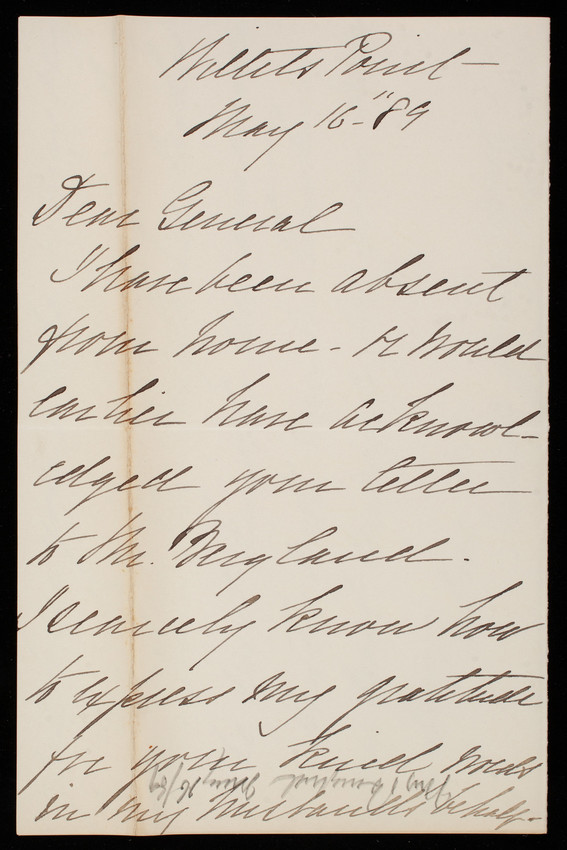 Willets Point —
May 16" – 89
Dear General
I have been absent
from home – or would
earlier have acknowl-
edged your letter
to Mr.
I scarcely know how
to express my gratitude
for your kind words
in my husband's behalf –
May 16/89